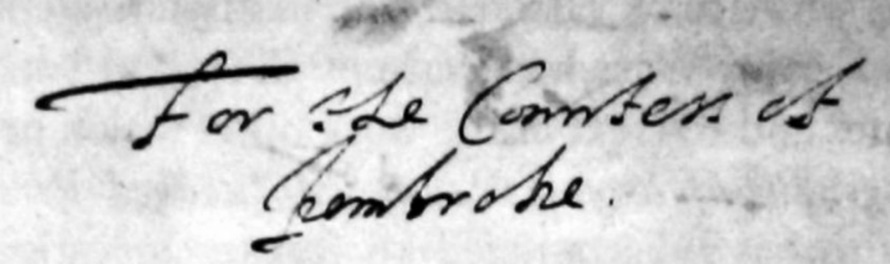 For the Countess of
Pembroke.